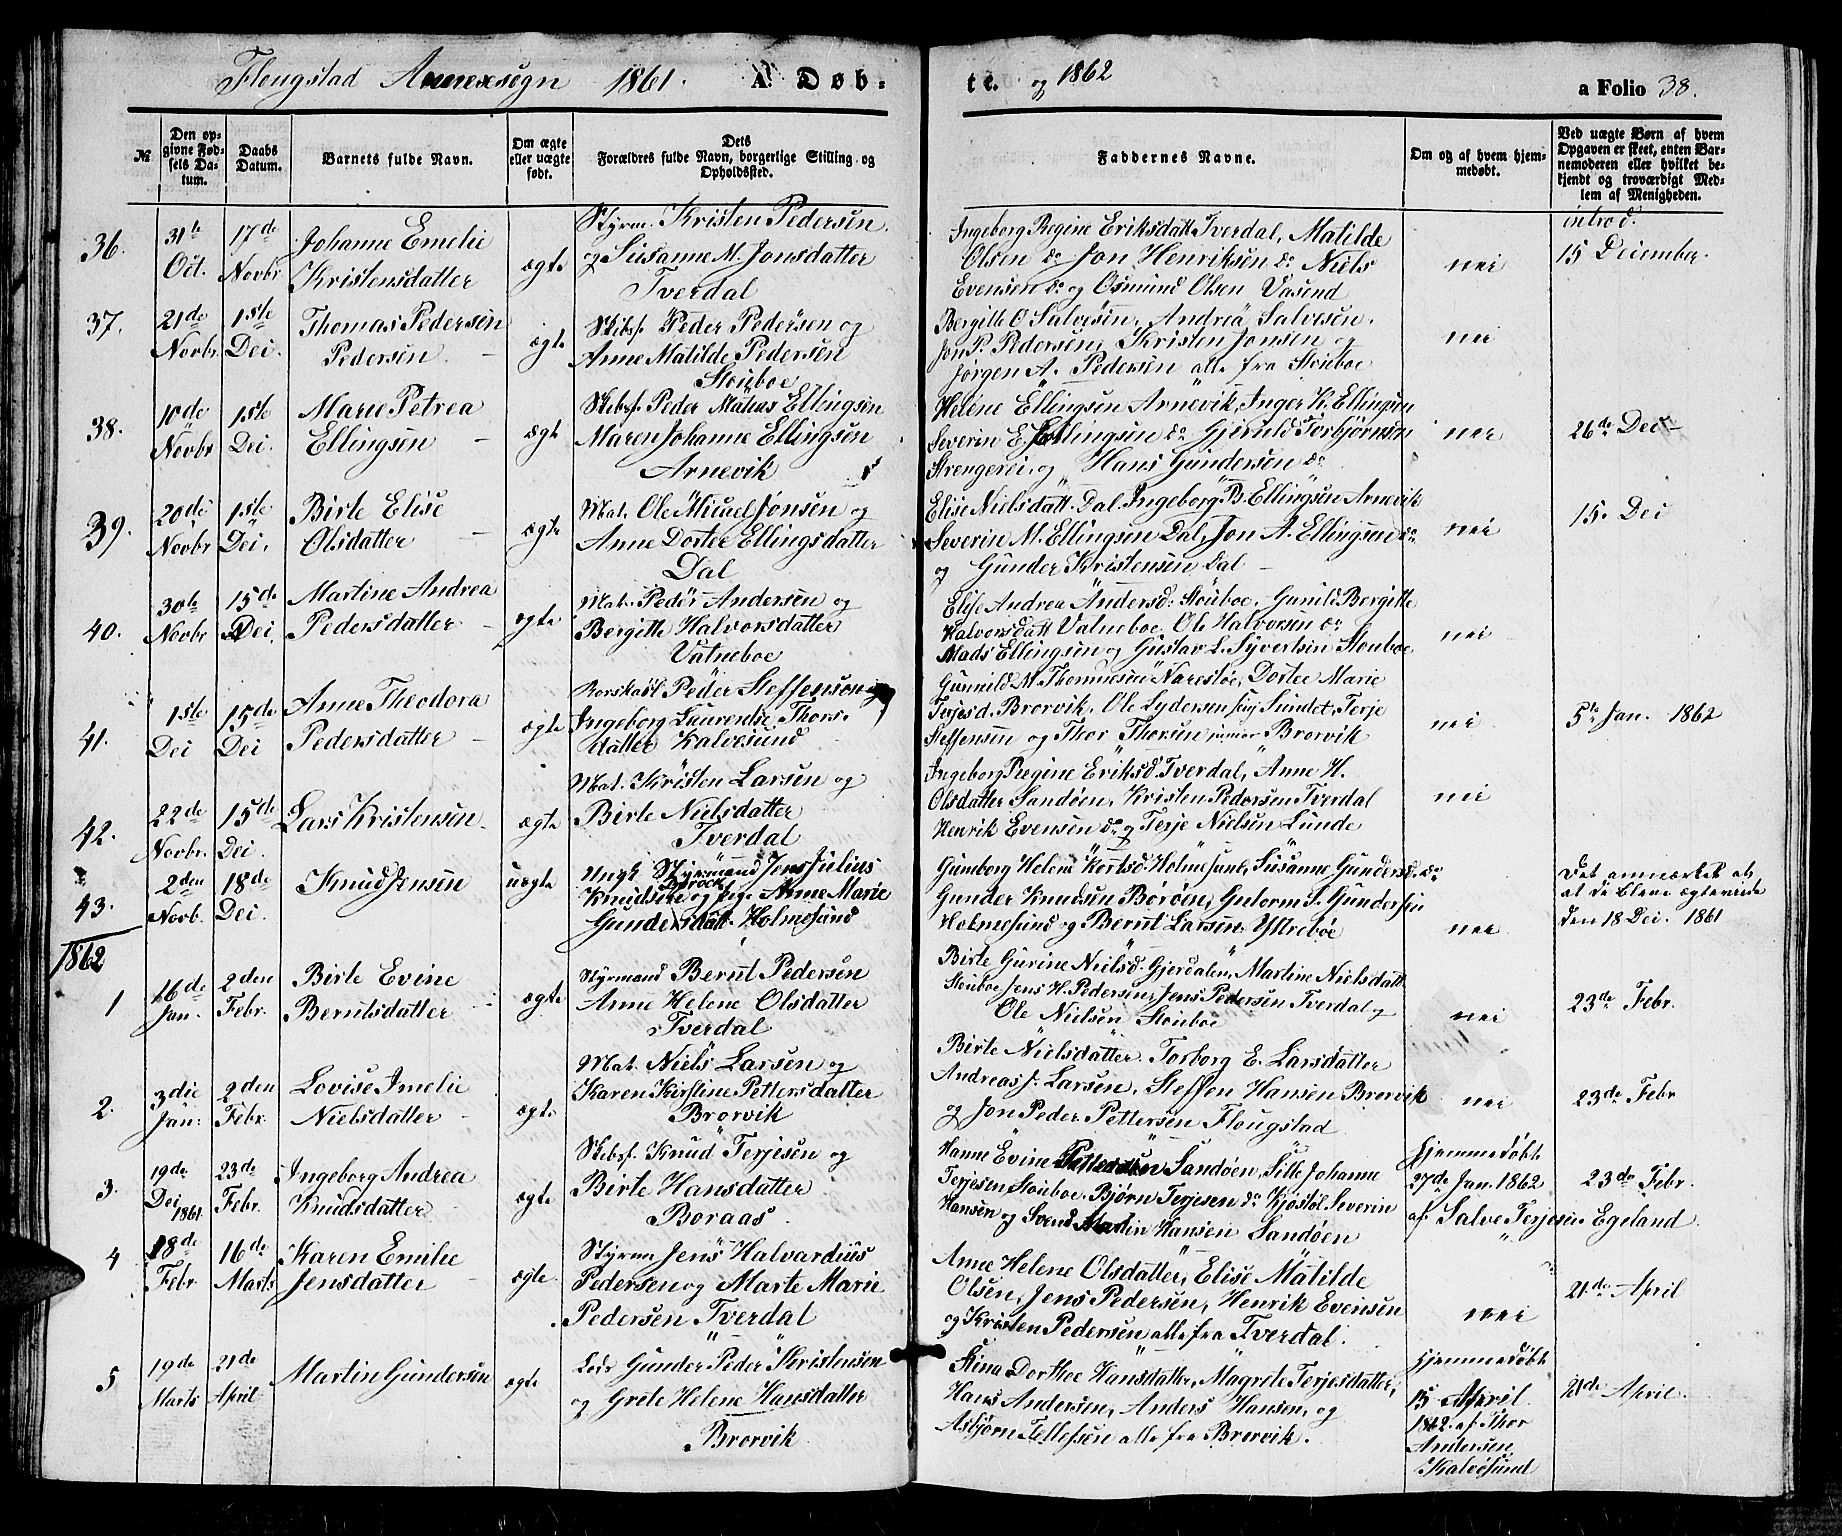 Flougstad Annexsogn 1861. A. Døb-
te. og 1862
a Folio 38.
№
Den op-
givne Fød-
sels Da-
tum.
Daabs
Datum.
Barnets fulde Navn.
Om ægte
eller uægte
født.
Dets
Forældres fulde Navn, borgerlige Stilling og
Opholdssted.
Faddernes Navne.
Om og af hvem hjem-
medøbt.
Ved uægte Børn af hvem
Opgaven er skeet, enten Bar-
nemoderen eller hvilket be-
kjendt og troværdigt Med-
lem af Menigheden.
36.
31te
Oct.
17de
Novbr
Johanne Emelie
Kristensdatter
ægte
Styrm. Kristen Pedersen
og Susanne M. Jonsdatter
Tverdal
Ingeborg Regine Eriksdatt Tverdal, Matilde
Olsen do Jon Henriksen do Niels
Evensen do og Osmund Olsen Vasend
nei
introd.
15 December
37.
21de
Novbr.
1ste
Dec.
Thomas Pedersen
Pedersen
ægte
Skibsf. Peder Pedersen og
Anne Matilde Pedersen
Stouboe
Bergitte O Salvesen, Andrea Salvesen.
Jon P. Pedersen, Kristen Jonsen og
Jørgen A. Pedersen alle fra Stouboe
nei
38.
10de
Novbr
1ste
Dei.
Marie Petrea
Ellingsen
ægte
Skibsf. Peder Matias Ellingsen
Maren Johanne Ellingsen
Arnevik
Helene Ellingsen Arnevik, Inger K. Ellingsen
Severin E. Ellingsen do Gjeruld Torbjørnsen
Strengerei, og Hans Gundersen do
nei
26de Dei
39.
20de
Novbr
1ste
Dei.
Birte Elise
Olsdatter
ægte
Mat. Ole Micael Jonsen og
Anne Dortee Ellingsdatter
Dal
Elise Nielsdatt. Dal, Ingeborg B. Ellingsen Arnevik
Severin M. Ellingsen Dal, Jon A. Ellingsen do
og Gunder Kristensen Dal
nei
15. Dei
40.
30te
Novbr
15de
Dei.
Martine Andrea
Pedersdatter
ægte
Mat. Peder Andersen og
Bergitte Halvorsdatter
Vatneboe
Elise Andrea Andersd: Stouboe. Gunild Bergitte
Halvorsdatt Vatneboe. Ole Halvorsen do
Mads Ellingsen og Gustav L. Syvertsen Stouboe
nei
41.
1ste
Dei
15de
Dei
Anne Theodora
Pedersdatter
ægte
Peder Steffenson og
Ingeborg Laurentie Thors-
datter Kalvesund
Gunnild M. Thommesen Narestøe, Dortee Marie
Terjesd. Brorvik, Ole Lydersen Sundet, Terje
Steffensen og Thor Thorsen junior Brorvik
nei
5te Jan. 1862
42.
22de
Novbr.
15de
Dei.
Lars Kristensen
ægte
Mat. Kristen Larsen og
Birte Nielsdatter
Tverdal
Ingeborg Regine Eriksd. Tverdal, Anne H.
Olsdatter Sandøen, Kristen Pedersen Tverdal
Henrik Evensen do og Terje Nielsen Lunde
nei
43.
2den
Novb.
18de
Dei.
Knud Jensen
uægte
Ungk Styrmand Jens Julius
Knudsen og pige Anne Marie
Gundersdatt. Holmesund
Gunborg Helene Holmesund, Susanne Gundersd. do
Gunder Knudsen Borøen, Gutorm S. Gundersen
Holmesund og Bernt Larsen Yttreboe
nei
Det anmærket at
at de bleve ægteviede
den 18 Dei. 1861
1862
1
16de
Jan.
2den
Febr.
Birte Evine
Berntsdatter
ægte
Styrmand Bernt Pedersen
Anne Helene Olsdatter
Tverdal
Birte Gurine Nielsd. Gjerdalen, Martine Nielsdatt.
Stouboe Jens H. Pedersen, Jens Pedersen Tverdal og
Ole Nielsen Stouboe
nei
23de Febr.
2.
3die
Jan:
2den
Febr.
Lovise Imelie
Nielsdatter
ægte
Mat. Niels Larsen og
Karen Kirstine Pettersdatter
Brorvik
Birte Nielsdatter. Torborg E. Larsdatter
Andreas J. Larsen, Steffen Hansen Brorvik
og Jon Peder Pettersen Flougstad
nei
23de Febr
3.
19de
Dei
1861.
23de
Febr.
Ingeborg Andrea
Knudsdatter
ægte
Skibsf. Knud Terjesen og
Birte Hansdatter
Boraas
Hanne Evine Sandøen, Sille Johanne
Terjesen Stouboe. Bjørn Terjesen do Kjøstol Severin
Hansen og Svend Martin Hansen Sandøen
Hjemmedøbt
27de Jan. 1862
af Salve Terjesen Egeland
23de Febr.
4
18de
Febr
16de
Marts
Karen Emilie
Jensdatter
ægte
Styrm Jens Halvardius
Pedersen og Marte Marie
Pedersen Tverdal
Anne Helene Olsdatter, Elise Matilde
Olsen, Jens Pedersen, Henrik Evensen
og Kristen Pedersen alle fra Tverdal.
nei
21de April
5
19de
Marts
21de
April
Martin Gundersen
ægte
Lods Gunder Peder Kristensen
og Grete Helene Hansdatter
Brorvik
Stina Dorthee Hansdatter, Magrete Terjesdatter,
Hans Andersen, Anders Hansen, og
Asbjørn Tellefsen alle fra Brorvik.
Hjemmedøbt
15 April
1862. af Thor
Andersen
Kalvøsund
21de April.